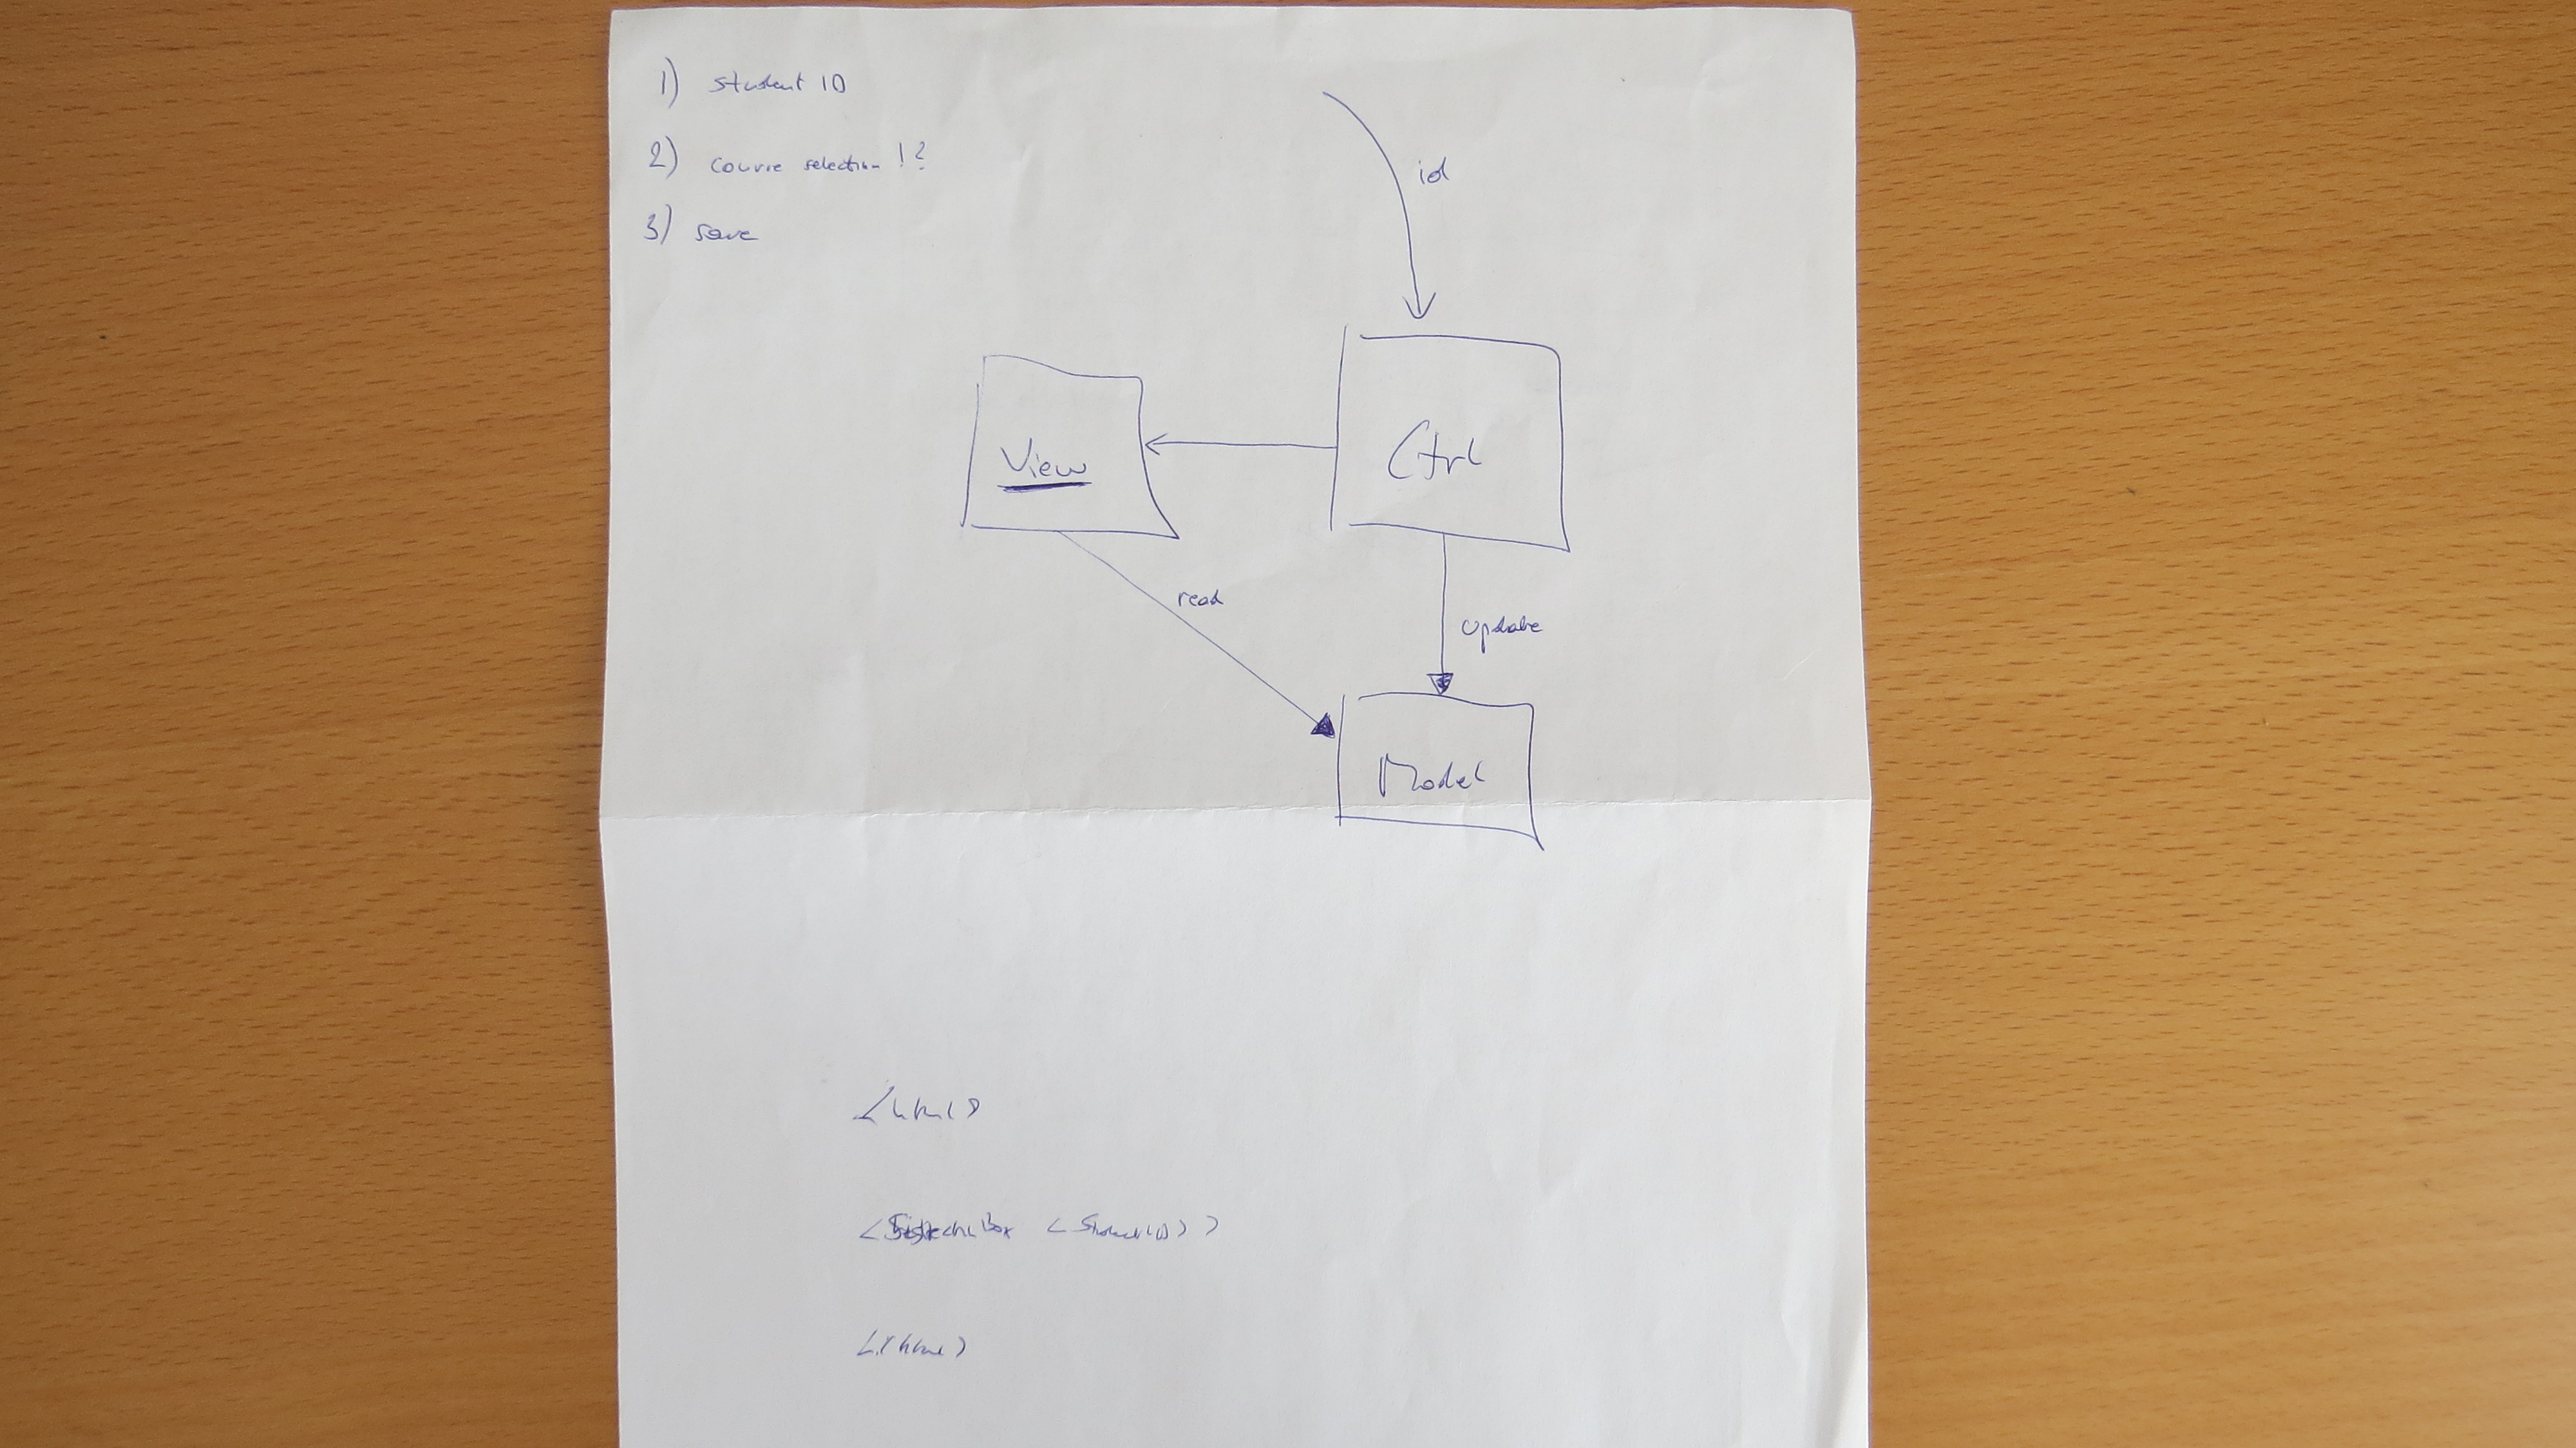 1) Student ID
2) course selection !?
3) save
id
View
Ctrl
read
update
Model
<html>
Box <StudentID>>
</html>